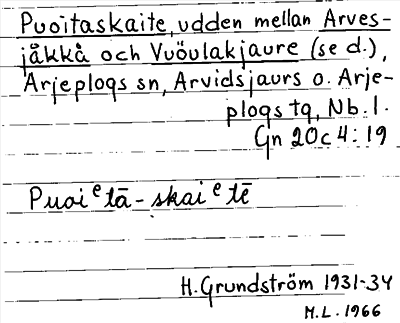 Puoitaskaite, udden mellan Arves-
jåkkå och Vuöulakjaure (se d.),
Arjeplogs sn, Arvidsjaurs o. Arje-
plogs tg, Nb.l.
Gn 20c4:19
Puoiᵉtā-skaiᵉtē
H. Grundström 1931-34
M.L. 1966